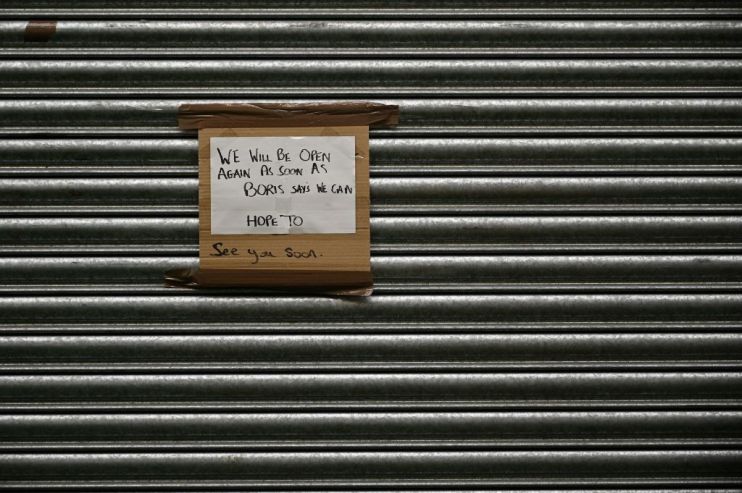 WE WILL BE OPEN
AGAIN AS SOON AS
BORIS SAYS WE CAN
HOPE TO
See you soon.